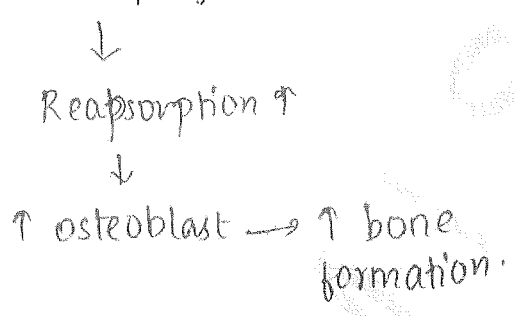 ↓
Reapsorption ↑
↓
↑ osteoblast → ↑ bone
formation.